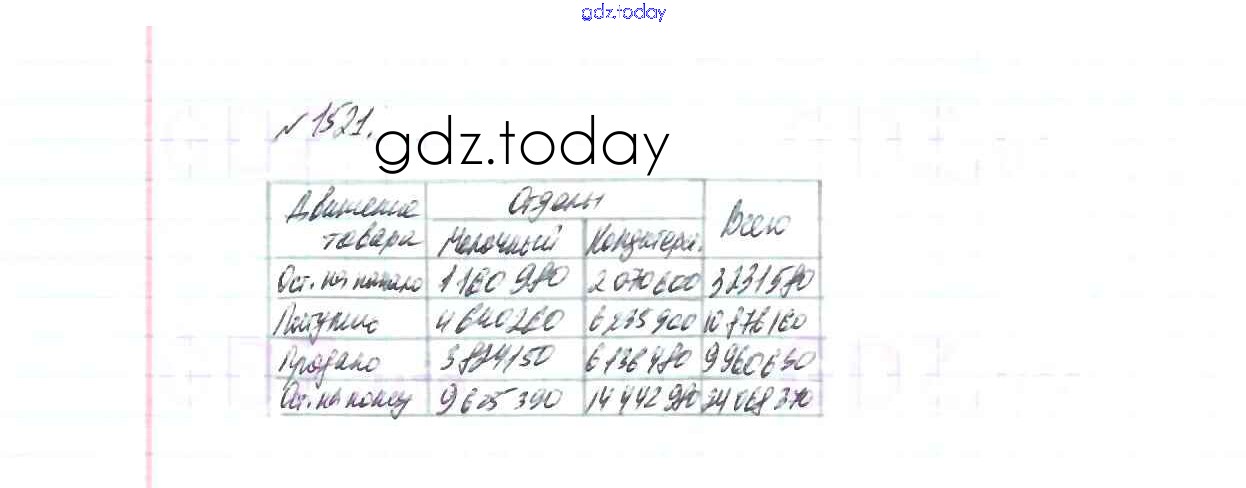 gdz.today
№1521.
gdz.today
Движение товара Отделы Всего
Молочный Кондитерск.
Ост. на начало 1160980 2070600 3231580
Поступило 4640260 6235900 10876160
Продано 3824150 6136480 9960630
Ост. на конец 9625390 14442980 24068370